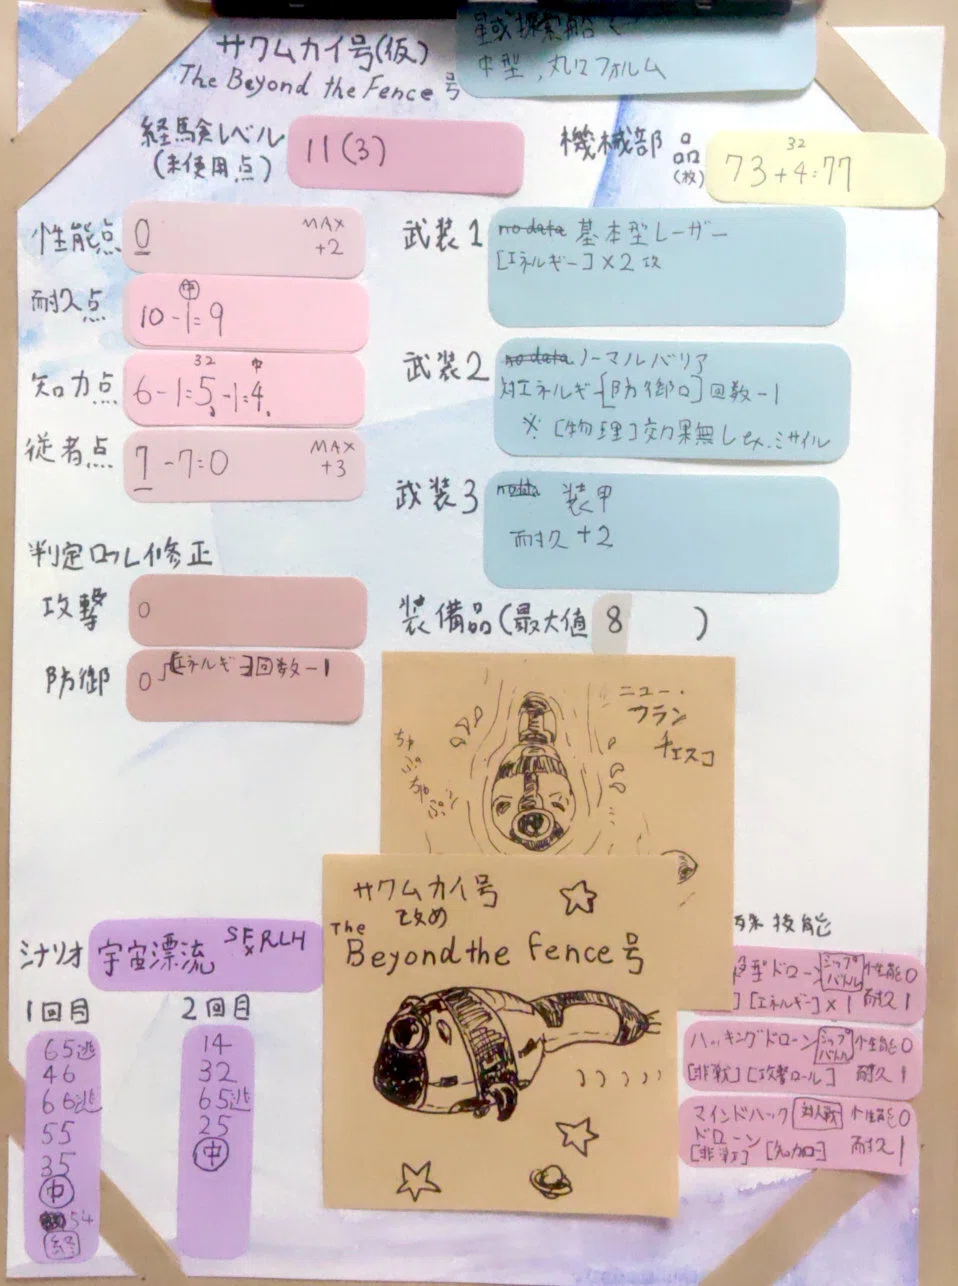 サワムカイ号(仮)
The Beyond the Fence 号
星域探索船
中型,丸フォルム
経験レベル
(未使用点)
11(3)
機械部品
(枚)
32
73+4=77
性能点
0
MAX
+2
耐久点
中
10-1=9
知力点
32 中
6-1=5-1=4
従者点
7-7=0
MAX
+3
判定ロール修正
攻撃
0
防御
0 [エネルギー]回数-1
武装1
no data 基本型レーザー
[エネルギー]×2攻
武装2
no data ノーマルバリア
対エネルギー[防御ロ]回数-1
※[物理]効果無し ex.ミサイル
武装3
no data 装甲
耐久+2
装備品(最大値 8 )
ニュー・
フラン
チェスコ
サワムカイ号
改め
The
Beyond the Fence 号
シナリオ
宇宙漂流
SF×RLH
1回目
65逃
46
66逃
55
35
中
54
終
2回目
14
32
65逃
25
中
殊技能
型ドローン シップバトル 性能0
[エネルギー]×1 耐久1
ハッキングドローン シップバトル 性能0
[非戦][攻撃ロール] 耐久1
マインドハック 対人戦 性能0
ドローン
[非戦] [知力ロー] 耐久1